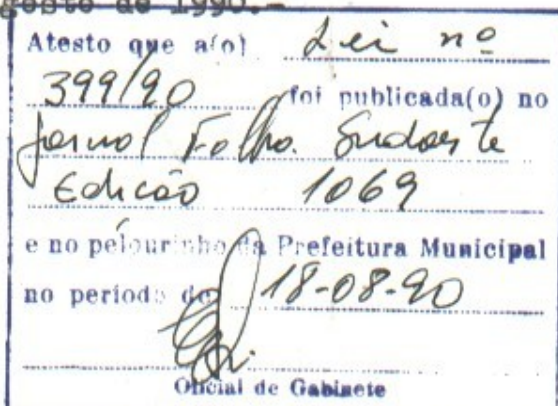 gosto de 1990.-
Atesto que a(o) Lei nº
399/90 foi publicada(o) no
Jornal Folha Sudoeste
Edição 1069
e no pelourinho da Prefeitura Municipal
no período de 18-08-90
Oficial de Gabinete